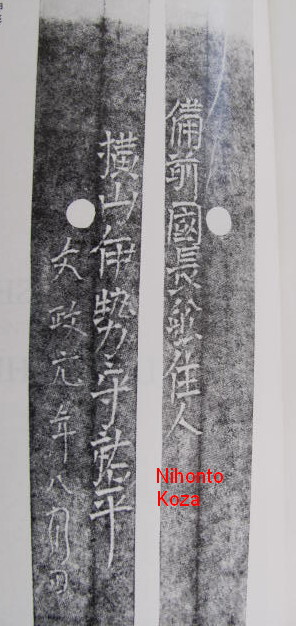 備前國長船住人
横山伊勢守祐平
文政元年八月日
Nihonto
Koza